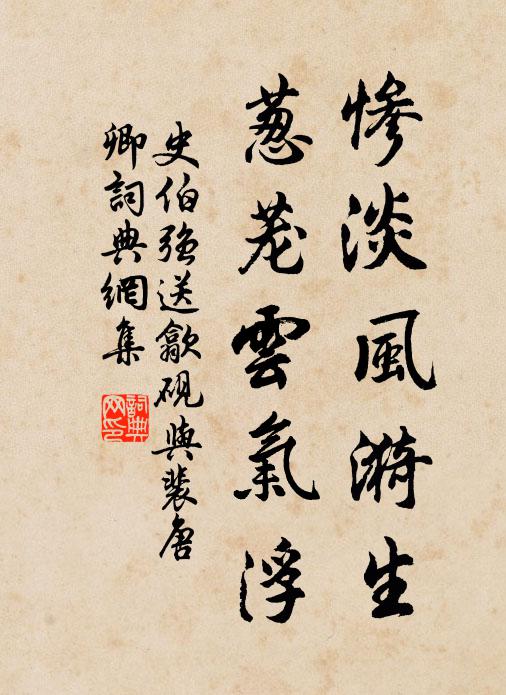 惨淡風漪生
葱茏雲氣浮
史伯强送歙硯與裴唐
卿詞典網集
詞典网印